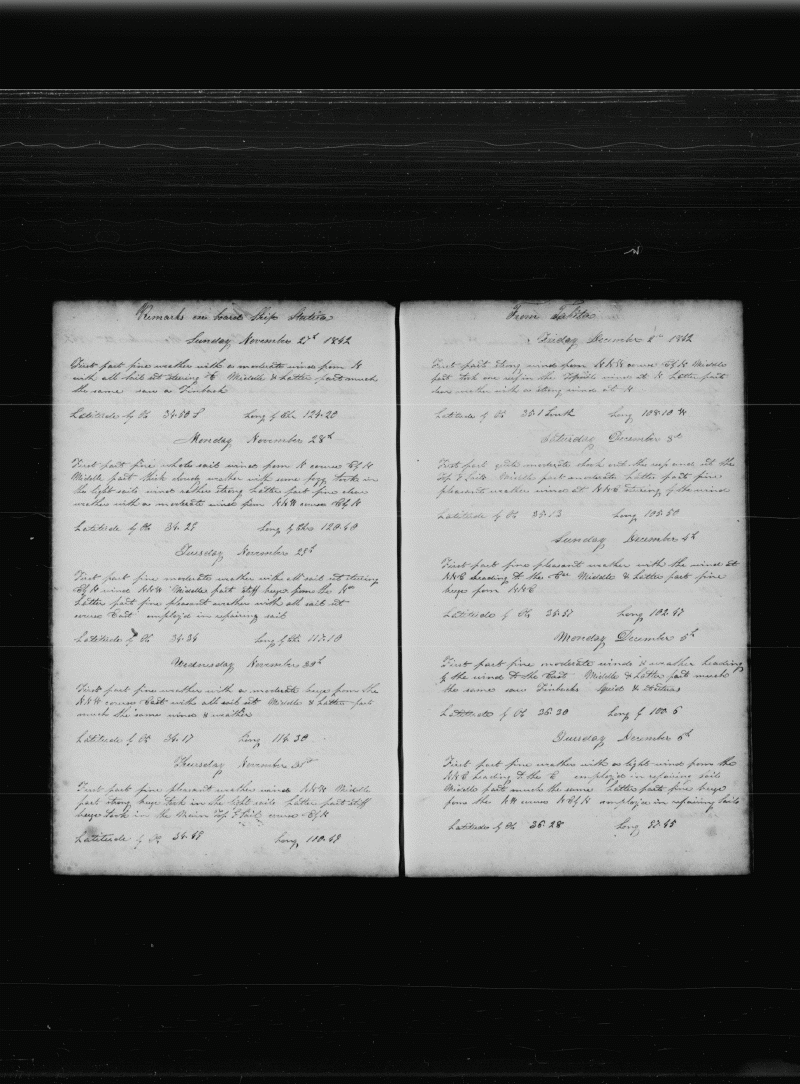 Remarks on board Ship
Sunday November 27th 1842
First part fine weather with a moderate wind from N
with all sail set steering E Middle & Latter part much
the same saw a Finback
Latitude by Ob 34-50 S Long by Ch 124-20
Monday November 28th
First part fine whole sail wind from N course E by N
Middle part thick cloudy weather with some fogg took in
the light sails wind rather strong Latter part fine clear
weather with a moderate wind from NNW course E by N
Latitude by Ob 34-29 Long by Chr 120-40
Tuesday November 29th
First part fine moderate weather with all sail set steering
E by N wind NNW Middle part stiff breeze from the N
Latter part fine pleasant weather with all sail set
course East employ'd in repairing sail
Latitude by Ob 34-34 Long by Ch 117-10
Wednesday November 30th
First part fine weather with a moderate breeze from the
NNW course East with all sail set Middle & Latter part
much the same wind & weather
Latitude by Ob 34-17 Long 114-30
Thursday November 31st
First part fine pleasant weather wind NNW Middle
part strong breeze took in the light sails Latter part stiff
breeze took in the Main Top G Sail course E by N
Latitude by Ob 34-49 Long 110-49
From
Friday December 2nd 1842
First part strong wind from NNW course E by N Middle
part took one reef in the Topsails wind at N Latter part
clear weather with a strong wind at N
Latitude by Ob 35-1 South Long 108-10 W
Saturday December 3d
First part quite moderate shook out the reefs and set the
Top G Sails Middle part moderate Latter part fine
pleasant weather wind at NNE steering by the wind
Latitude by Ob 35-13 Long 105-50
Sunday December 4th
First part fine pleasant weather with the wind at
NNE heading to the E Middle & Latter part fine
breeze from NNE
Latitude by Ob 35-57 Long 102-47
Monday December 5th
First part fine moderate winds & weather heading
by the wind to the East Middle & Latter part much
the same saw Finbacks
Latitude by Ob 36-20 Long by 100-6
Tuesday November 6th
First part fine weather with a light wind from the
NNE heading to the E employ'd in repairing sails
Middle part much the same Latter part fine breeze
from the NW course N E by N employ'd in repairing Sails
Latitude by Ob 36-28 Long 97-45